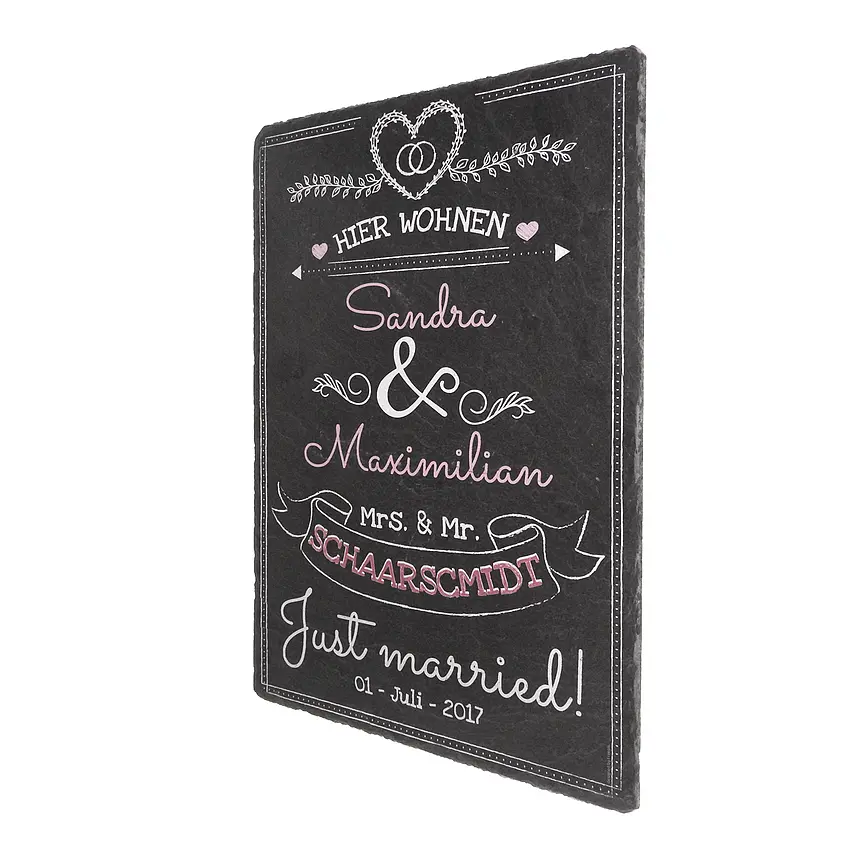 HIER WOHNEN
Sandra
&
Maximilian
Mrs. & Mr.
SCHAARSCMIDT
Just married!
01 - Juli - 2017